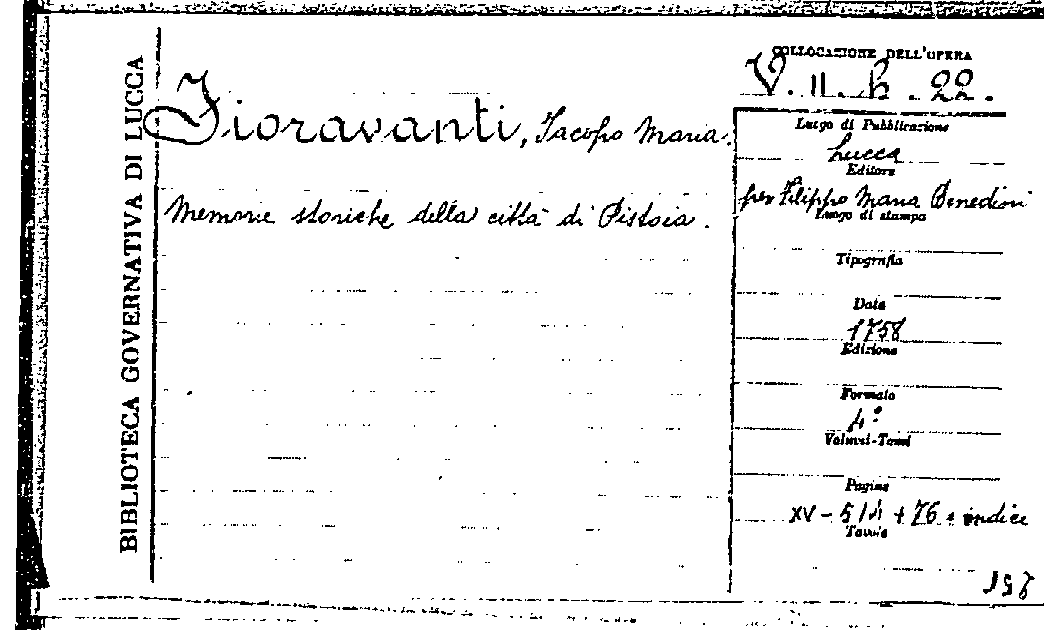 BIBLIOTECA GOVERNATIVA DI LUCCA
Fioravanti, Jacopo Maria.
Memorie storiche della città di Pistoia.
COLLOCAZIONE DELL'OPERA
V. II. b. 22.
Luogo di Pubblicazione
Lucca
Editore
per Filippo Maria Benedini
Luogo di stampa
Tipografia
Data
1758
Edizione
Formato
4°
Volumi-Tomi
Pagine
XV - 514 + 76 e indice
Tavole